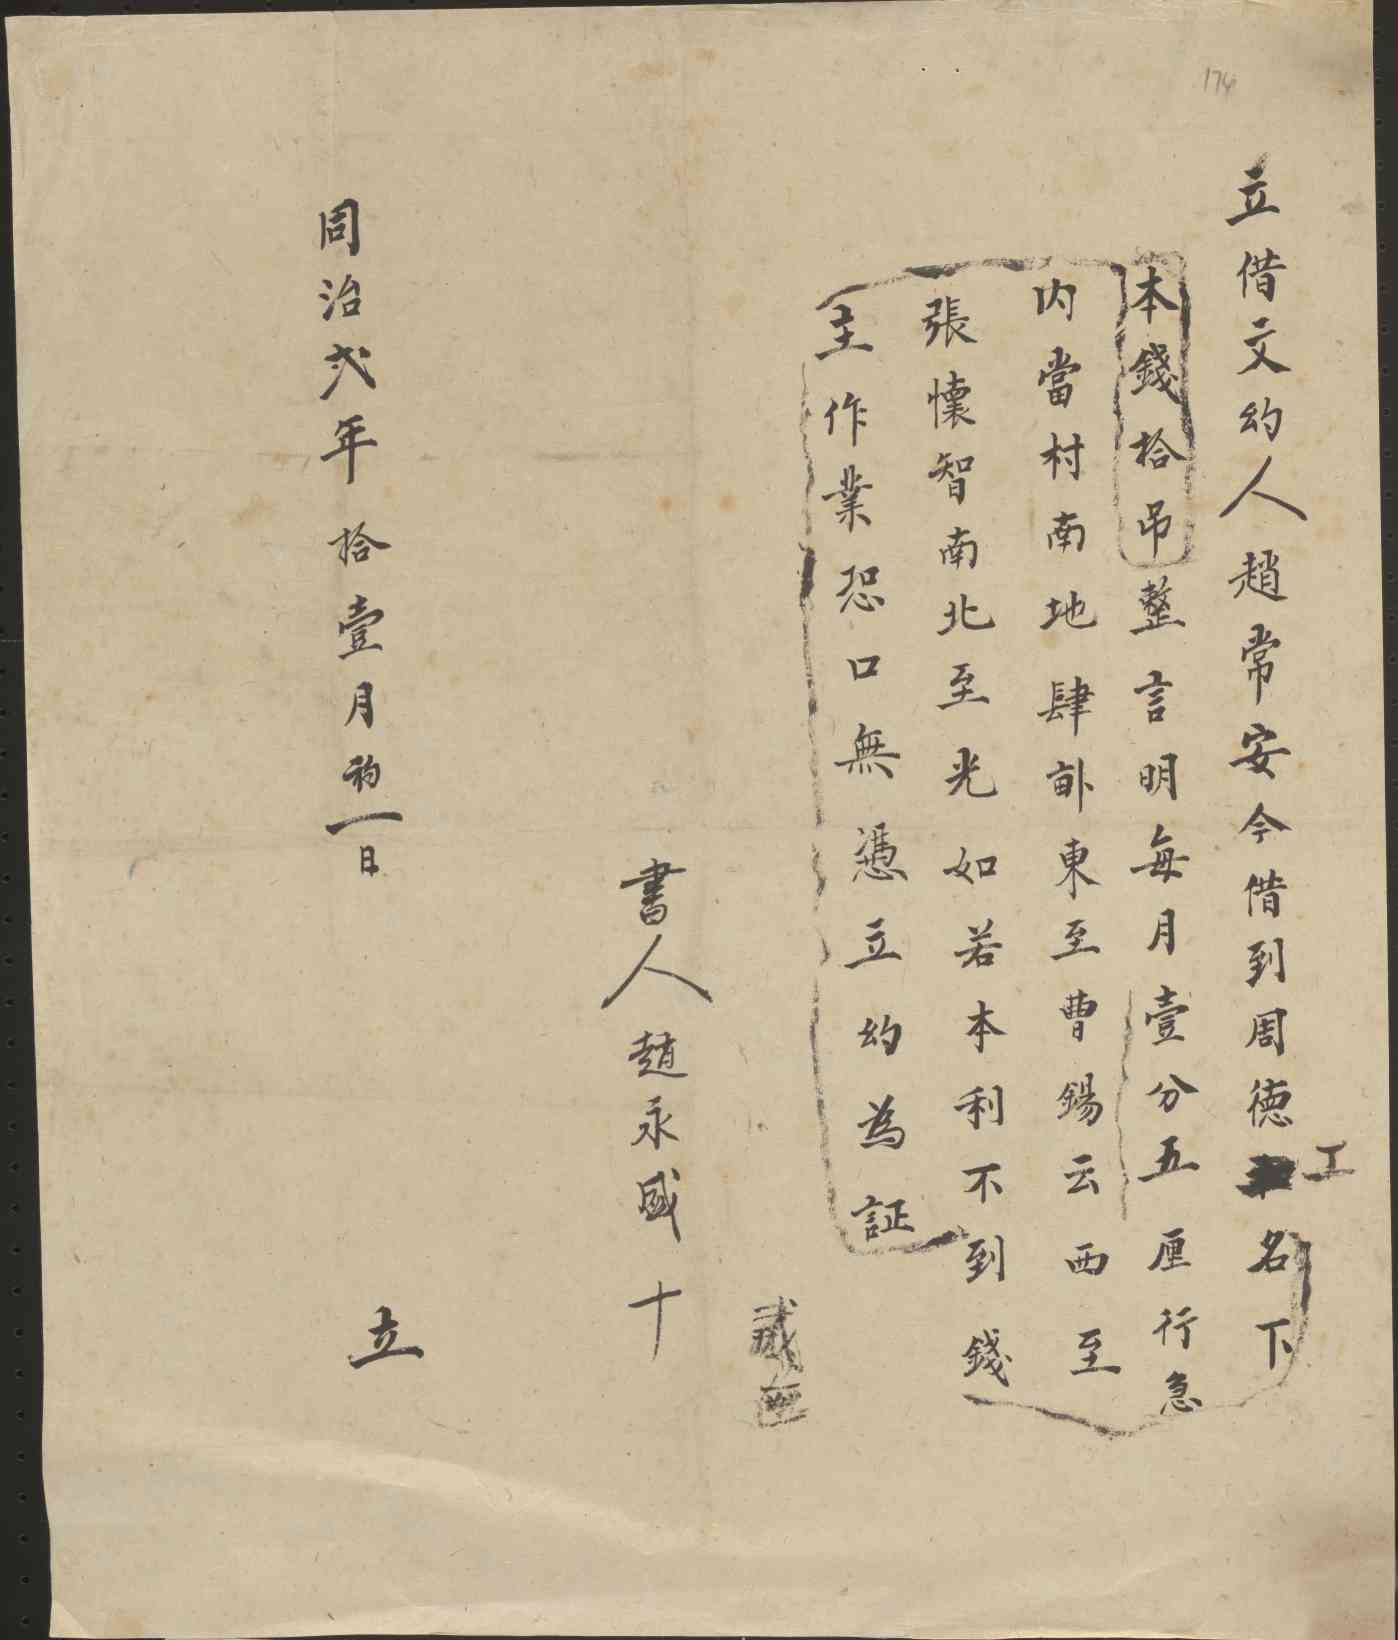 174
立借文約人趙常安今借到周德工名下
本錢拾吊整言明每月壹分五厘行急
内當村南地肆畝東至曹錫云西至
張懷智南北至光如若本利不到錢
主作業恐口無憑立約為証
書人趙永盛十
同治弍年拾壹月初一日立